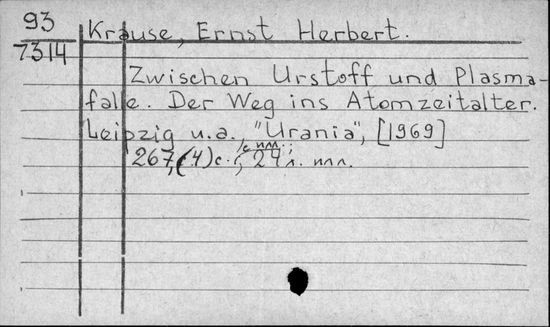 93
7314
Krause, Ernst Herbert.
Zwischen Urstoff und Plasma-
falle. Der Weg ins Atomzeitalter.
Leipzig u.a., "Urania", [1969]
с илл.;
267,(4)с.; 24 л. илл.